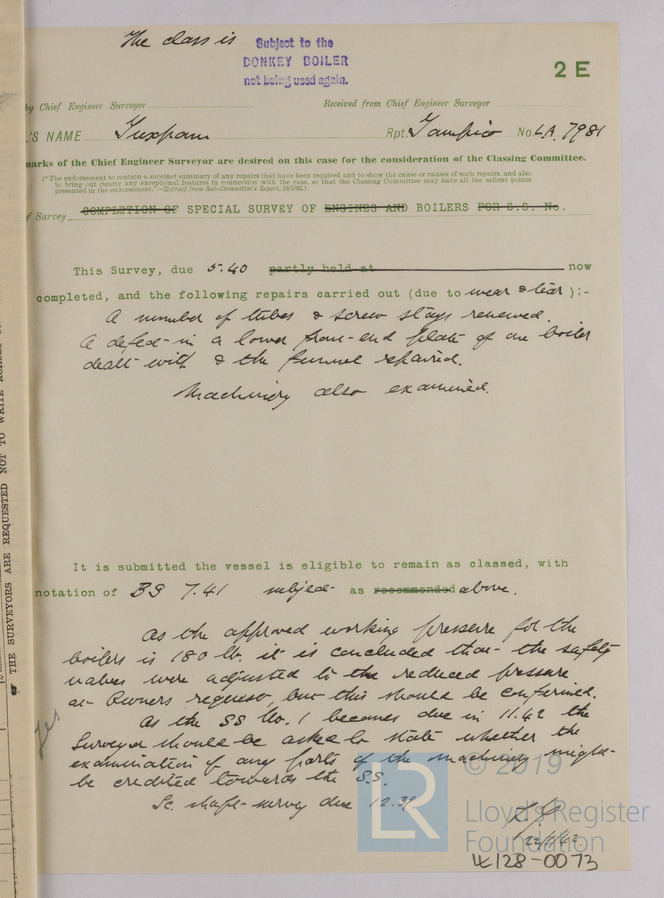 The class is Subject to the
DONKEY BOILER
not being used again.
2 E
by Chief Engineer Surveyor Received from Chief Engineer Surveyor
'S NAME Tuxpam Rpt. Tampico No. LA. 7981
marks of the Chief Engineer Surveyor are desired on this case for the consideration of the Classing Committee.
("The endorsement to contain a succinct summary of any repairs that have been required and to show the cause or causes of such repairs, and also
to bring out clearly any exceptional features in connection with the case, so that the Classing Committee may have all the salient points
presented in the endorsement."—Extract from Sub-Committee's Report,
of Survey COMPLETION OF SPECIAL SURVEY OF ENGINES AND BOILERS FOR S.S. No.
This Survey, due 5.40 partly held at now
completed, and the following repairs carried out (due to wear & tear ):-
A number of tubes & screw stays renewed.
A defect in a lower front end plate of one boiler
dealt with & the funnel repaired.
Machinery also examined.
It is submitted the vessel is eligible to remain as classed, with
notation of BS 7.41 subject as recommended above.
As the approved working pressure for the
boilers is 180 lb. it is concluded that the safety
valves were adjusted to the reduced pressure
at Owners request, but this should be confirmed.
As the SS No. 1 becomes due in 11.42 the
Surveyor should be asked to state whether the
examination of any parts of the machinery might
be credited towards the S.S.
Sc. shaft survey due 12.39
yes
THE SURVEYORS ARE REQUESTED NOT TO WRITE
© 2019
LR
Lloyd's Register
Foundation
22/1/42
LE128-0073